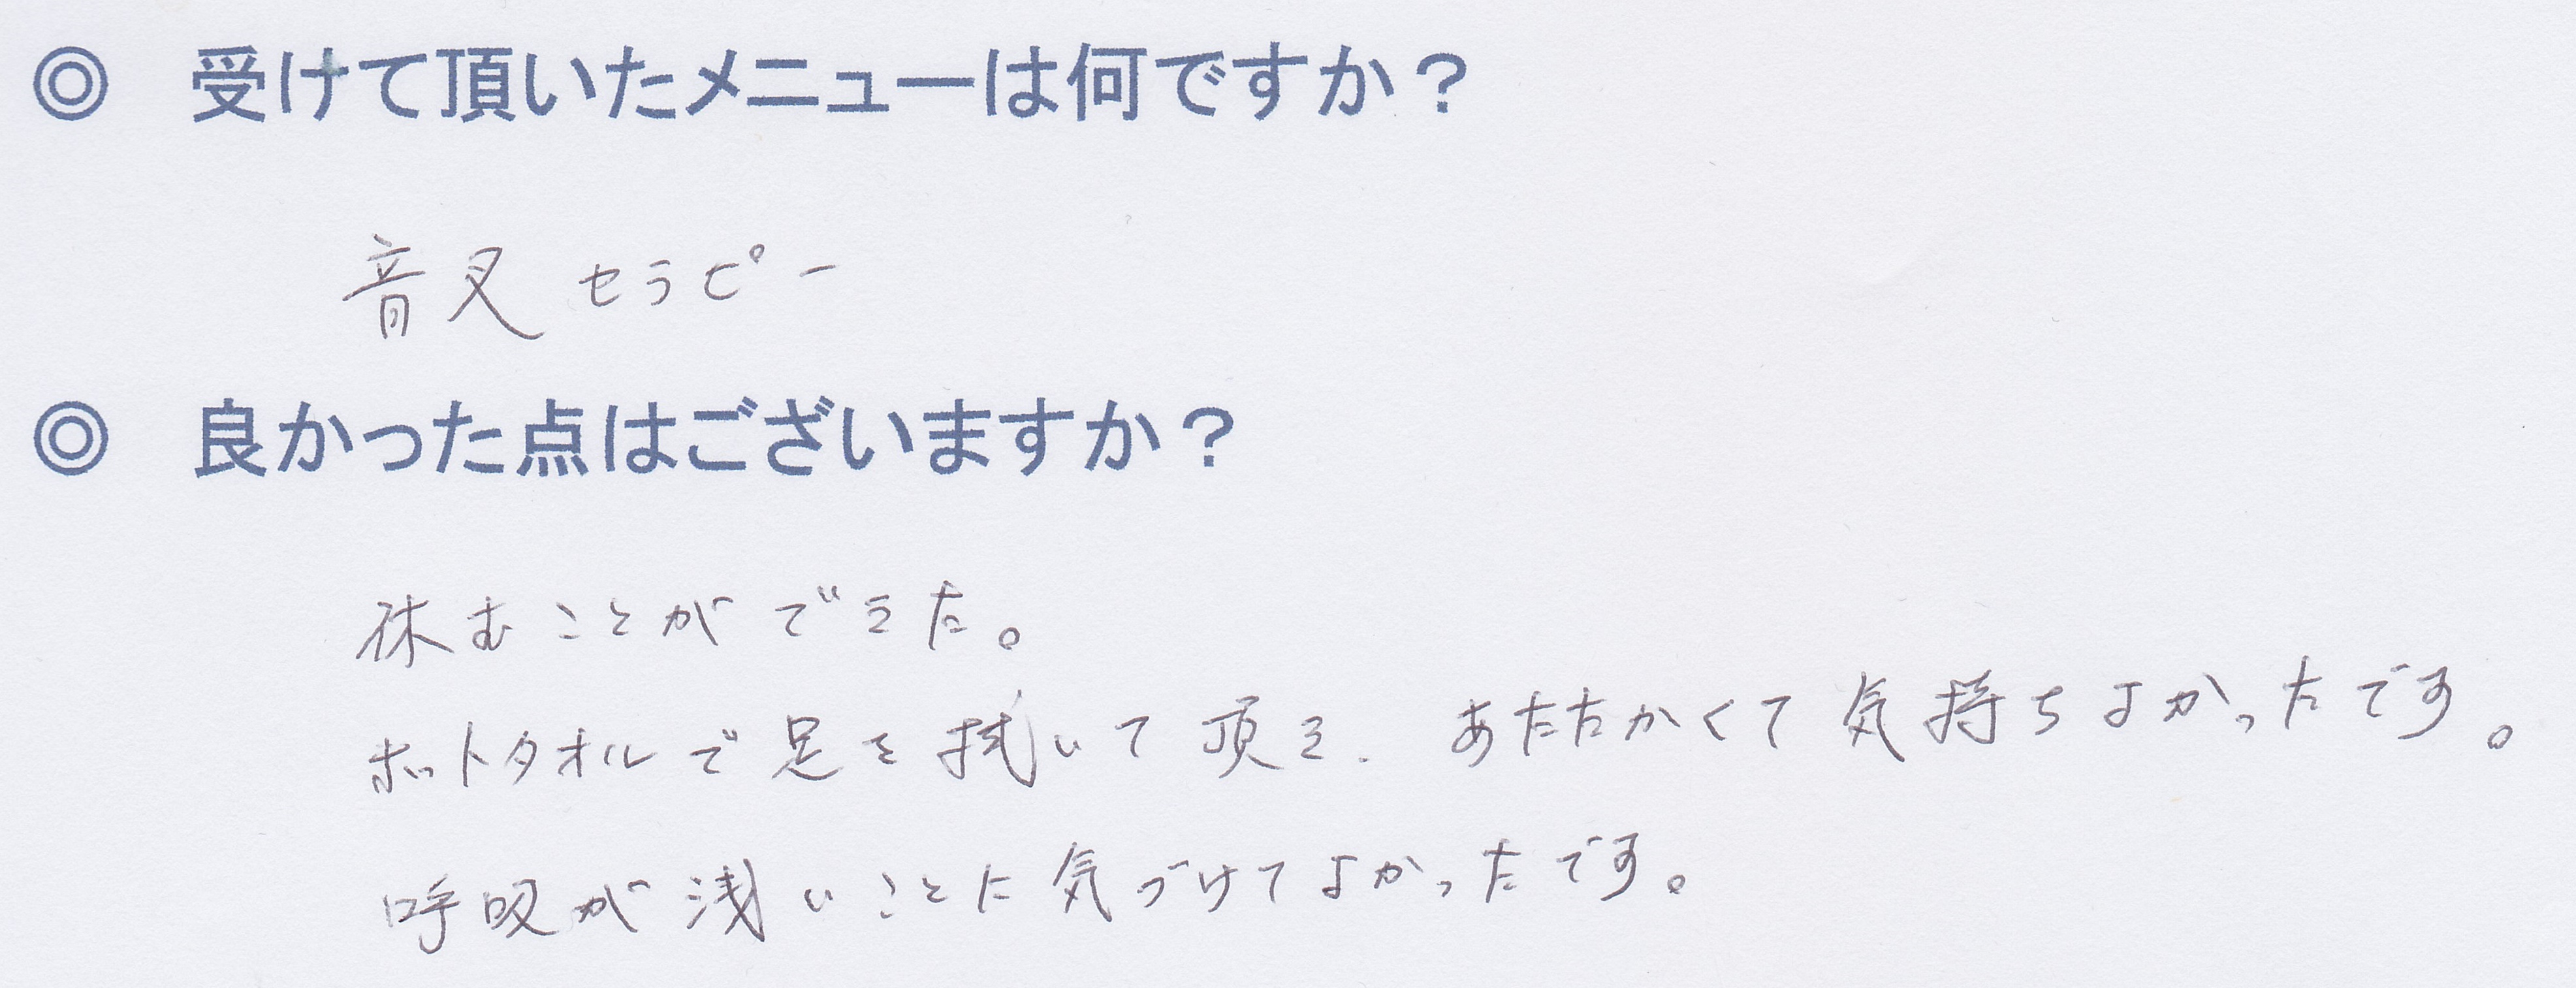 ◎ 受けて頂いたメニューは何ですか？
音叉セラピー
◎ 良かった点はございますか？
休むことができた。
ホットタオルで足を拭いて頂き、あたたかくて気持ちよかったです。
呼吸が浅いことに気づけてよかったです。